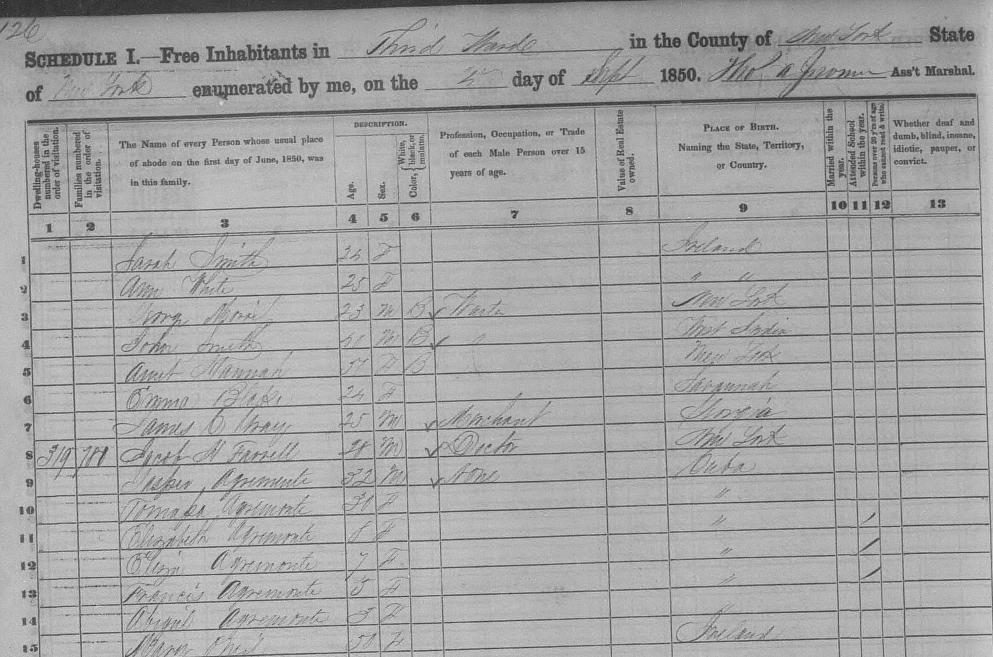 126
SCHEDULE I.—Free Inhabitants in Third Ward in the County of New York State
of New York enumerated by me, on the day of Sept 1850. Ass't Marshal.
Dwelling-houses numbered in the order of visitation.
Families numbered in the order of visitation.
The Name of every Person whose usual place of abode on the first day of June, 1850, was in this family.
DESCRIPTION.
Age.
Sex.
Color, { White, black, or mulatto.
Profession, Occupation, or Trade of each Male Person over 15 years of age.
Value of Real Estate owned.
PLACE OF BIRTH. Naming the State, Territory, or Country.
Married within the year.
Attended School within the year.
Persons over 20 y'rs of age who cannot read & write.
Whether deaf and dumb, blind, insane, idiotic, pauper, or convict.
1 2 3 4 5 6 7 8 9 10 11 12 13
1 Sarah Smith 24 F Ireland
2 Ann White 25 F " "
3 Morris 23 M B New York
4 John Smith M B " West India
5 Hannah F B New York
6 Emma Blake 24 F Savannah
7 James C Gray 25 M Merchant Georgia
8 319 Jacob H Farrell 28 M Doctor New York
9 Agremonte 32 M None Cuba
10 Tomasa Agremonte 30 F "
11 Elizabeth Agremonte 8 F " /
12 Agremonte 7 F " /
13 Francis Agremonte 5 F " /
14 Abigail Agremonte 3 F
15 50 F Ireland